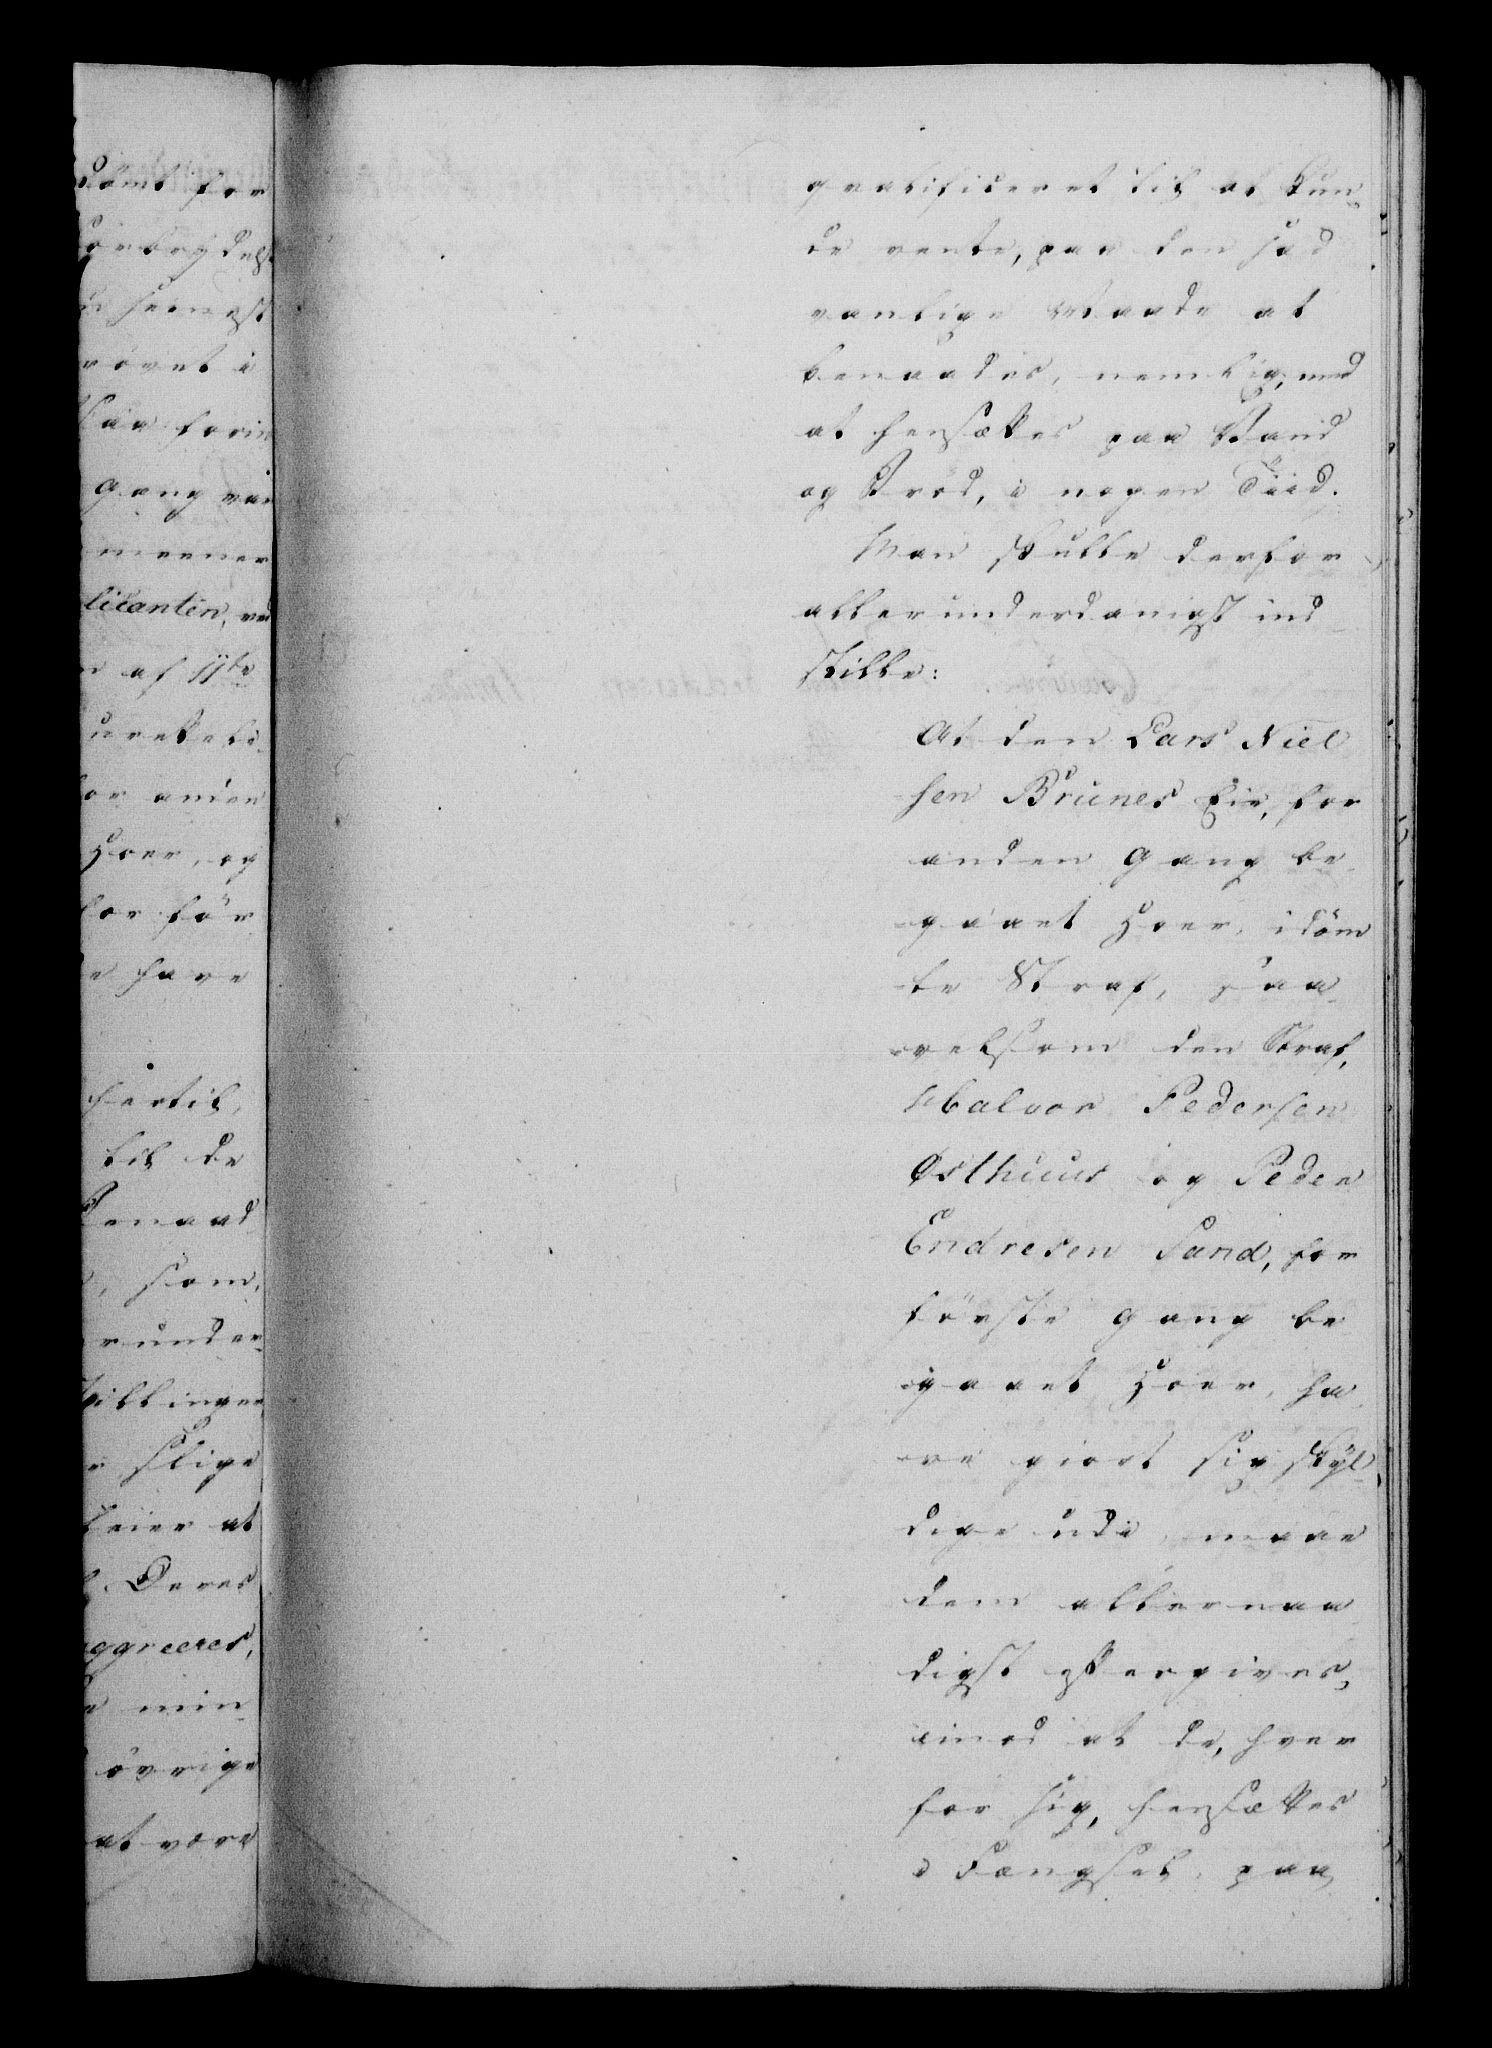 dömt for
forbrydels
n heengst
rövet i
saa forin
Gang var
meener
licantin, ved
n af 11te
uretteli
for anden
Hoer, og
for för
e have
hertil,
til de
Benaad
, som,
runder
stillinger
r slige
leier at
Deres
ggreeres,
e min
övrige
at være
qvalificeret til at kun
de vente, paa den sæd
vanlige Maade at
benaades, nemlig; med
at hensættes paa Vand
og Bröd, i nogen Tiid.
Man skulle derfor
allerunderdanigst ind
stille:
At den Lars Niel
sen Brunes Eie, for
anden Gang be
gaaet Hoer, idöm
te Straf, saa
velsom den Straf,
Halvor Pedersen
Østhuus og Peder
Endresen Sand, for
förste Gang be
gaaet Hoer, ha
ve giort sig skyl
dige udi, maae
dem allernaa
digst eftergives,
imod at de, hver
for sig, hensættes
i Fængsel, paa